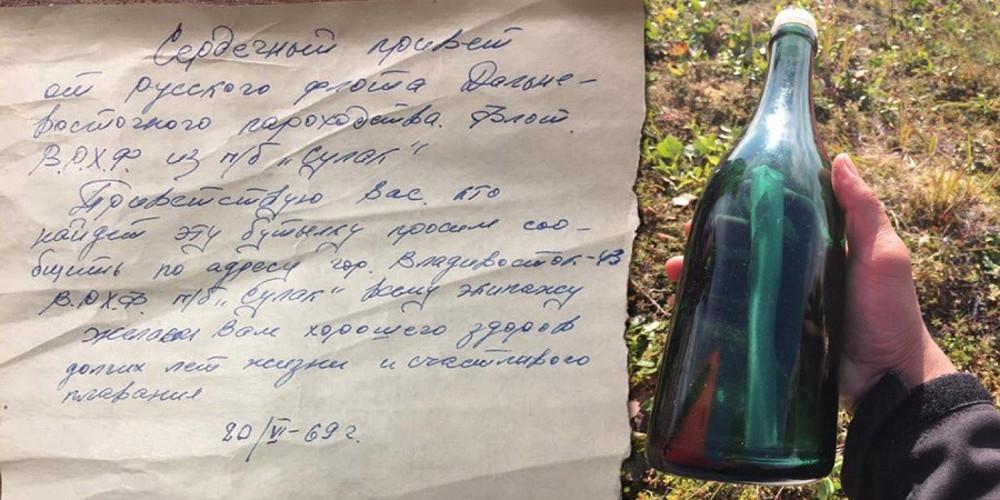 Сердечный привет
от русского флота Дальне-
восточного пароходства. Флот.
В.Р.Х.Ф. из п/б „Сулак“
Приветствую Вас, кто
найдет эту бутылку просим соо-
бщить по адресу гор. Владивосток-43
В.Р.Х.Ф. п/б „Сулак“ всему экипажу
желаем Вам хорошего здоров
долгих лет жизни и счастливого
плавания
20/VI-69 г.